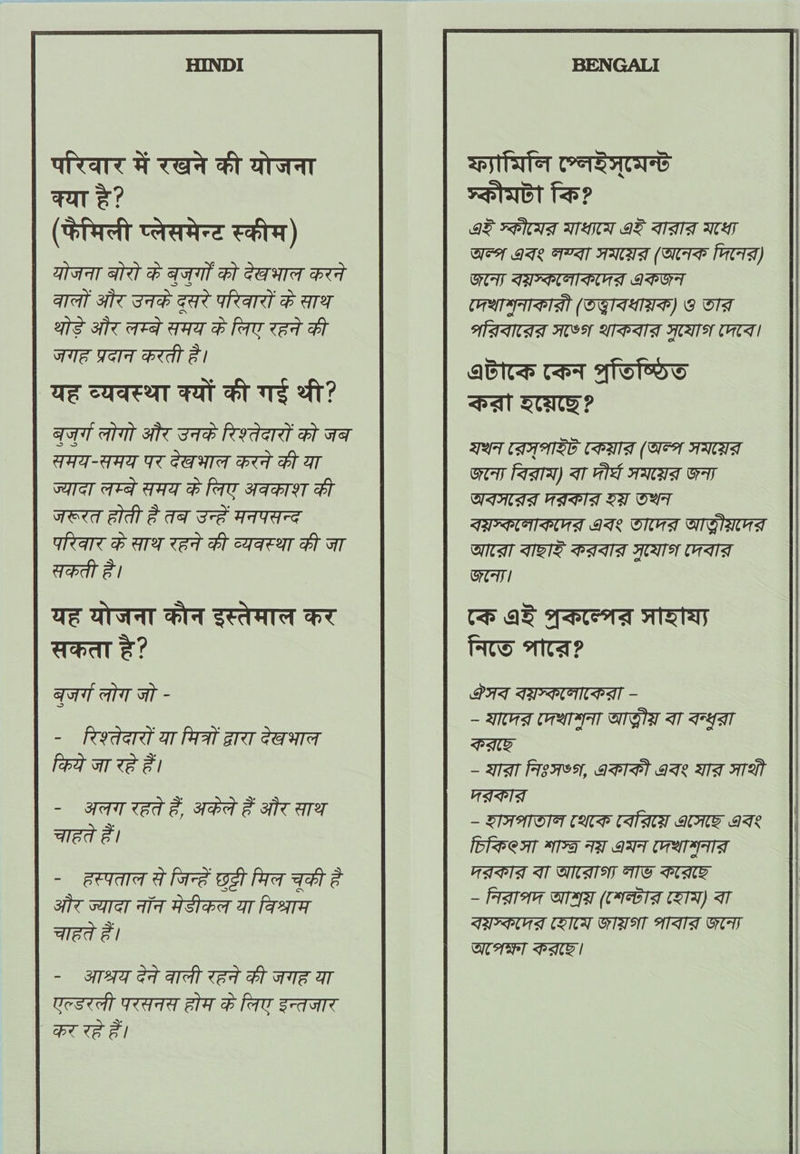 HINDI
परिवार में रखने की योजना
क्या है?
(फैमिली प्लेसमेन्ट स्कीम)
योजना बोरो के बुजुर्गों को देखभाल करने
वालों और उनके दूसरे परिवारों के साथ
थोड़े और लम्बे समय के लिए रहने की
जगह प्रदान करती है।
यह व्यवस्था क्यों की गई थी?
बुजुर्ग लोगो और उनके रिश्तेदारों को जब
समय-समय पर देखभाल करने की या
ज्यादा लम्बे समय के लिए अवकाश की
जरूरत होती है तब उन्हें मनपसन्द
परिवार के साथ रहने की व्यवस्था की जा
सकती है।
यह योजना कौन इस्तेमाल कर
सकता है?
बुजर्ग लोग जो -
- रिश्तेदारों या मित्रों द्वारा देखभाल
किये जा रहे हैं।
- अलग रहते हैं, अकेले हैं और साथ
चाहते हैं।
- हस्पताल से जिन्हें छुट्टी मिल चूकी है
और ज्यादा नॉन मेडीकल या विश्राम
चाहते हैं।
- आश्रय देने वाली रहने की जगह या
एल्डरली परसनस होम के लिए इन्तजार
कर रहे हैं।
BENGALI
ফ্যামিলি প্লেইস্‌মেন্ট
স্কীমটা কি?
এই স্কীমের মাধ্যমে এই বারার মধ্যে
অল্প এবং লম্বা সময়ের (অনেক দিনের)
জন্যে বয়স্কলোকদের একজন
দেখাশুনাকারী (তত্ত্বাবধায়ক) ও তার
পরিবারের সঙ্গে থাকবার সুযোগ দেবে।
এটাকে কেন প্রতিষ্ঠিত
করা হয়েছে?
যখন রেস্‌পাইট কেয়ার (অল্প সময়ের
জন্যে বিরাম) বা দীর্ঘ সময়ের জন্য
অবসরের দরকার হয় তখন
বয়স্কলোকদের এবং তাদের আত্নীয়দের
আরো বাছাই করবার সুযোগ দেবার
জন্যে।
কে এই প্রকল্পের সাহায্য
নিতে পারে?
ঐসব বয়স্কলোকেরা –
– যাদের দেখাশুনা আত্নীয় বা বন্ধুরা
করছে
– যারা নিঃসঙ্গ, একাকী এবং যার সাথী
দরকার
– হাসপাতাল থেকে বেরিয়ে এসেছে এবং
চিকিৎসা শাস্ত্র নয় এমন দেখাশুনার
দরকার বা আরোগ্য লাভ করেছে
– নিরাপদ আশ্রয় (শেল্টার হোম) বা
বয়স্কদের হোমে জায়গা পাবার জন্যে
অপেক্ষা করছে।